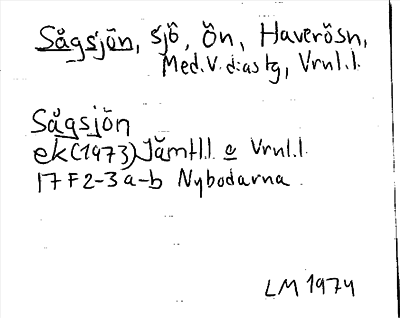 Sågsjön, sjö, Ön, Haverösn,
Med.V. diastg, Vrnl.l.
Sågsjön
ek (1973) Jämtl.l o Vrnl.l.
17 F 2-3 a-b Nybodarna
LM 1974